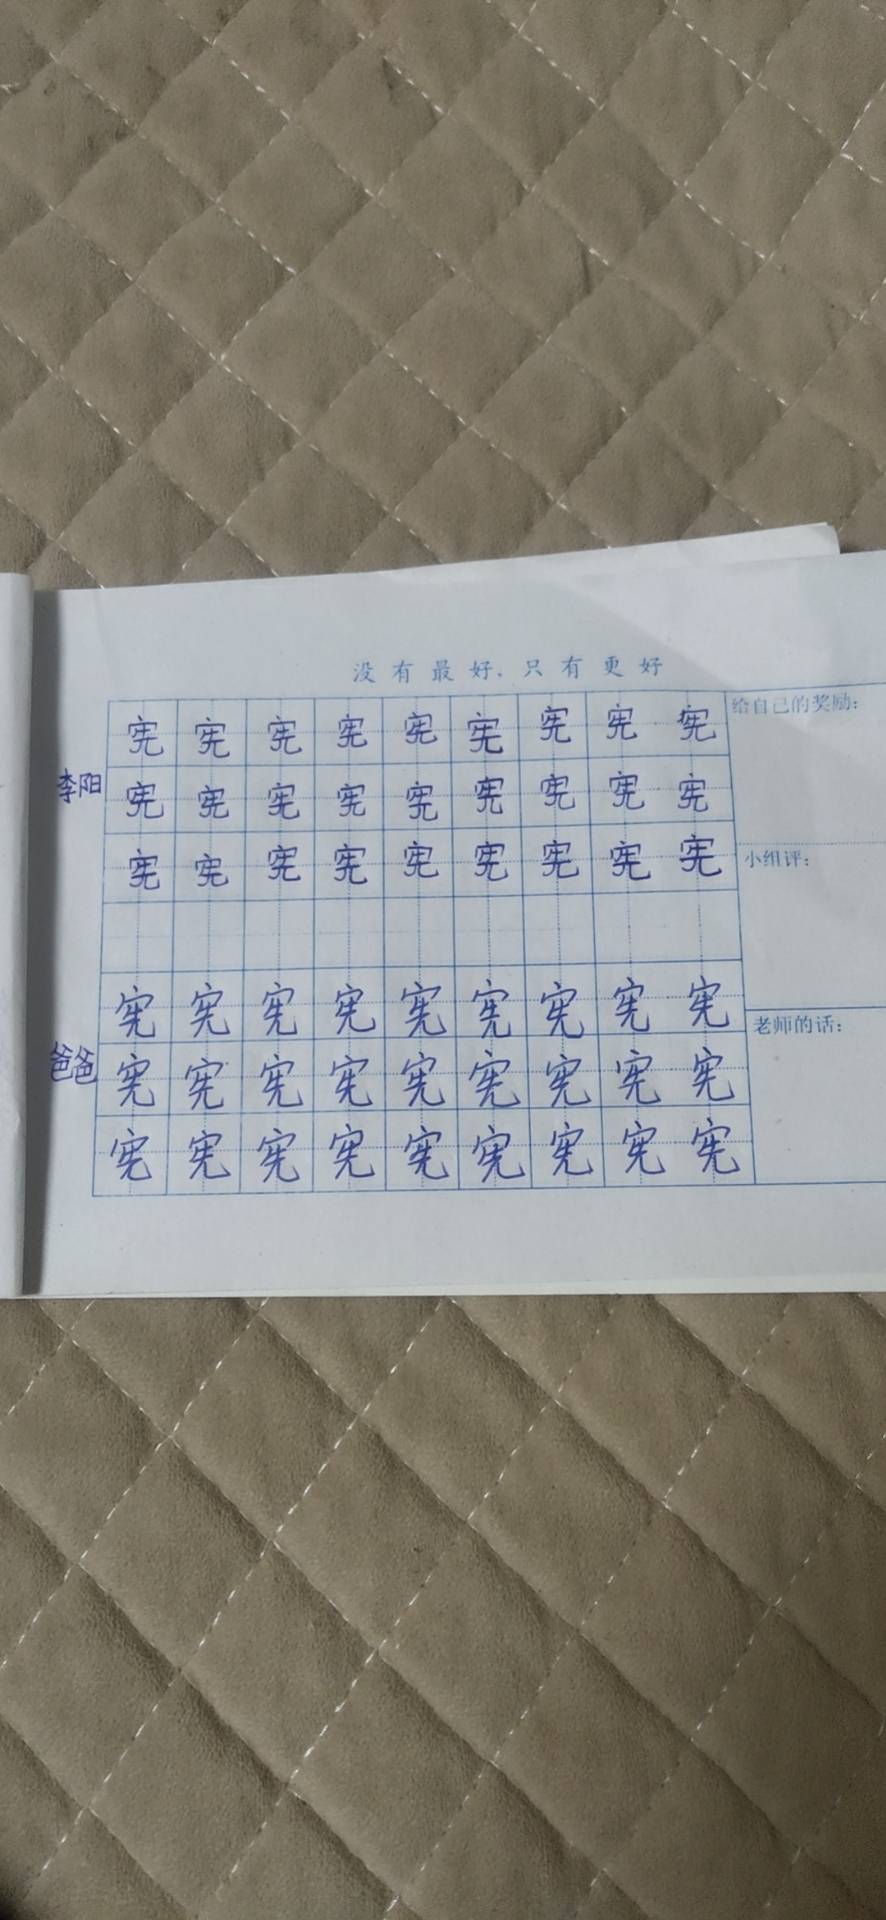 没有最好,只有更好
宪宪宪宪宪宪宪宪宪
给自己的奖励:
李阳
宪宪宪宪宪宪宪宪宪
宪宪宪宪宪宪宪宪宪
小组评:
宪宪宪宪宪宪宪宪宪
老师的话:
爸爸
宪宪宪宪宪宪宪宪宪
宪宪宪宪宪宪宪宪宪